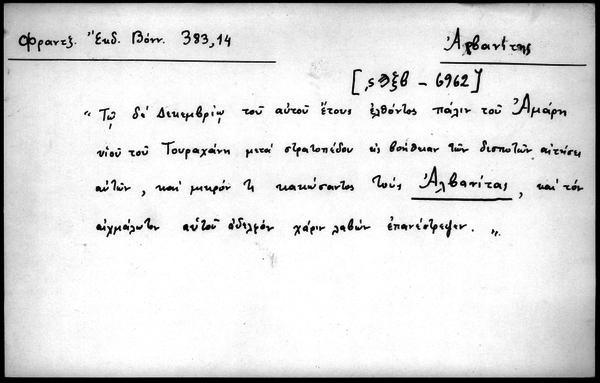 Φραντζ. Ἔκδ. Βόνν. 383,14
Ἀρβανίτης
[‚ςϡξβ – 6962]
„ Τῷ δέ Δεκεμβρίῳ τοῦ αὐτοῦ ἔτους ἐλθόντος πάλιν τοῦ Ἀμάρη
υἱοῦ τοῦ Τουραχάνη μετά στρατοπέδου εἰς βοήθειαν τῶν δεσποτῶν αἰτήσει
αὐτῶν, καί μικρόν τι κακώσαντος τούς Ἀλβανίτας, καί τόν
αἰχμάλωτον αὐτοῦ ἀδελφόν χάριν λαβών ἐπανέστρεψεν. „